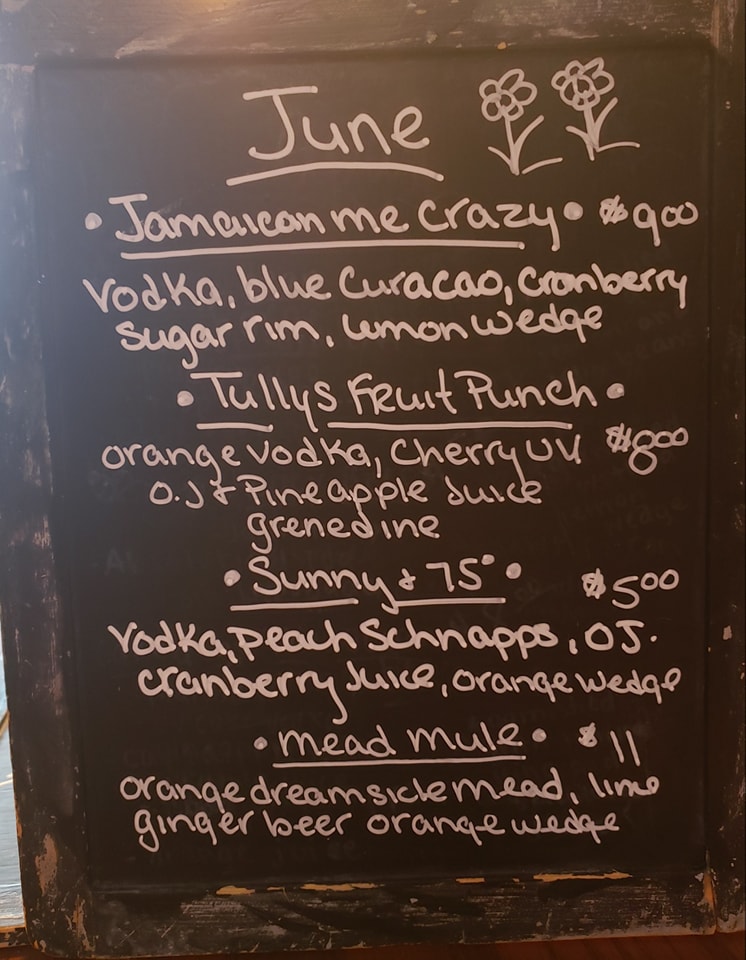 June
• Jamaican me crazy • $9.00
Vodka, blue Curacao, cranberry
sugar rim, lemon wedge
• Tullys Fruit Punch •
orange vodka, Cherry UV $8.00
O.J & Pineapple Juice
grenedine
• Sunny & 75° • $5.00
Vodka, peach Schnapps, OJ.
cranberry Juice, orange wedge
• mead mule • $11
orange dreamsicle mead, lime
ginger beer orange wedge